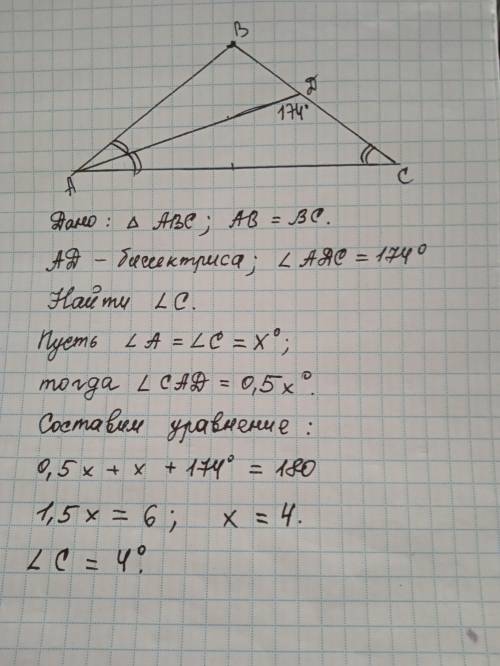 B
Д
174°
A
C
Дано: △ ABC; AB = BC.
АД - биссектриса; ∠АДС = 174°
Найти ∠C.
Пусть ∠A = ∠C = x°;
тогда ∠САД = 0,5x°.
Составим уравнение:
0,5x + x + 174° = 180
1,5x = 6; x = 4.
∠C = 4°.